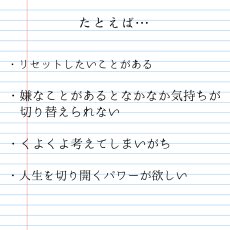 たとえば…
・リセットしたいことがある
・嫌なことがあるとなかなか気持ちが
切り替えられない
・くよくよ考えてしまいがち
・人生を切り開くパワーが欲しい